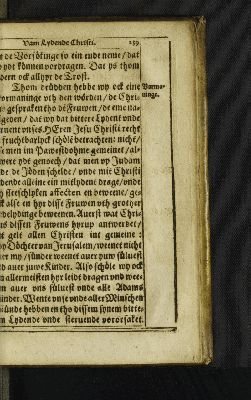 Vam Lydende Christi. 259
t de Vorsünnge so ein ende neme / dat
ydt können vordragen. Dat ys thom
vern ock allhyr de Trost.
Thom drüdden hebbe wy ock eine Vorma-
vormaninge vth den wörden / de Chri- ninge.
us gesproken tho de Fruwen / de eme na-
geden / dat wy dat bittere Lydent vnde
eruent vnses HEren Jesu Christi recht
fruchtbarlyck schöle betrachten: nicht /
se men im Pawestdohme gemeinet / al-
were ydt genoch / dat men vp Judam
de de Jöden schelde / vnde mit Christi
dende alleine ein mitlydent drage / vnde
fleischlyken affecten
ck alse en hyr disse Fruwen vth grother
edelydinge bewenen. Auerst wat Chri-
us dissen Fruwens hyrup antwerdet /
t geit allen Christen int gemeine:
y Döchter van Jerusalem / wenet nicht
er my / sünder weenet auer juw süluest
d auer juwe Kinder. Also schöle wy ock
allermeisten hyr leidt dragen vnd wee-
n auer vns süluest vnde alle Adams
inder. Wente vnse vnde aller Minschen
ünde hebben en tho dissem synem bitte-
n Lydende vnde steruende vororsaket.